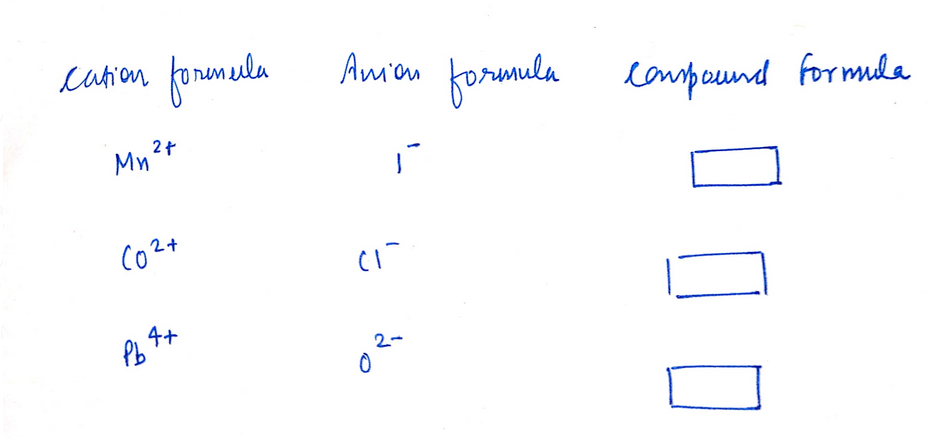 Cation formula Anion formula Compound formula
Mn²⁺ I⁻
Co²⁺ Cl⁻
Pb⁴⁺ O²⁻